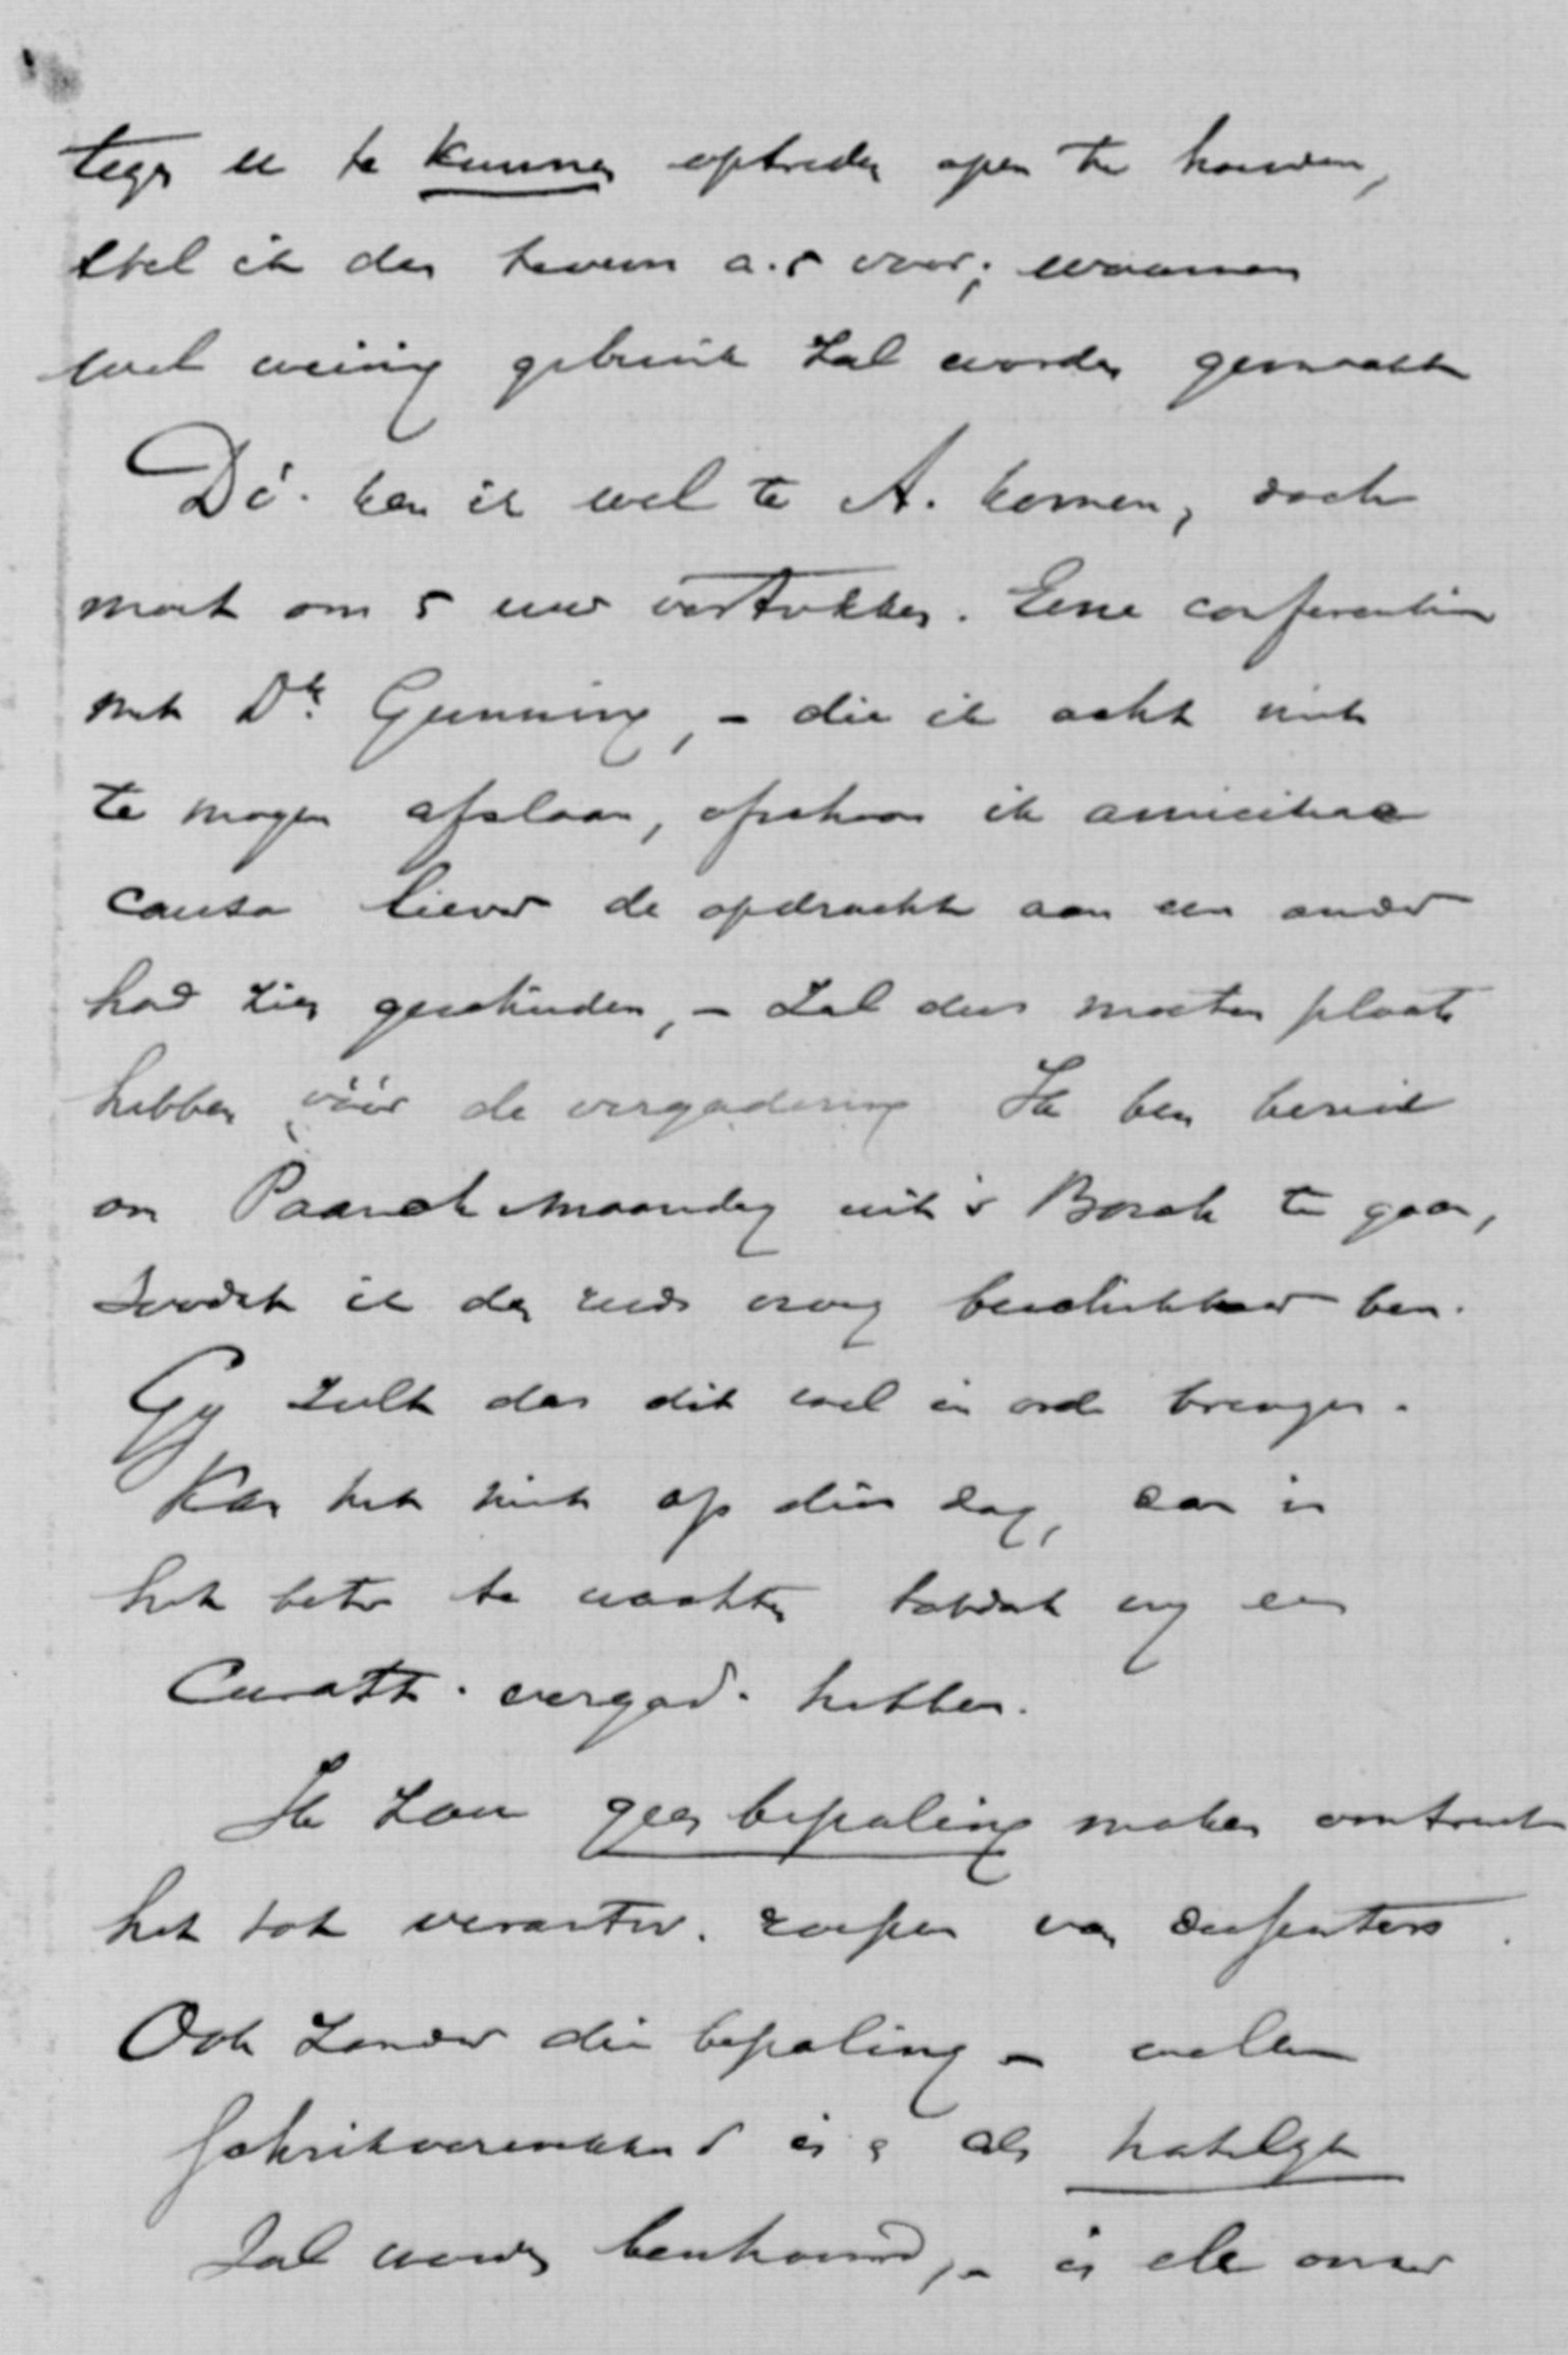 tegen u te kunnen optreden open te houden,
stel ik den termen a.s voor; waarvan
wel weinig gebruik zal worden gemaakt
Di. kan ik wel te A. komen, doch
moet om 5 uur vertrekken. Eene conferentie
met Dr. Gunning, – die ik acht niet
te mogen afslaan, ofschoon ik amicitiae
causa liever de opdracht aan een ander
had zien geschieden, – zal dus moeten plaats
hebben vóór de vergadering Ik ben bereid
om Paasch Maandag uit 's Bosch te gaan,
zoodat ik dan reeds vroeg beschikbaar ben.
Gy zult dan dit wel in orde brengen.
Kan het niet op dien dag, dan is
het beter te wachten totdat wy een
Curatt. vergad. hebben.
Ik zou geen bepaling maken omtrent
het tot verantw. roepen van deputaten.
Ook zonder die bepaling – welke
schrikverwekkend is & als hatelyk
zal worden beschouwd, – is elk onzer